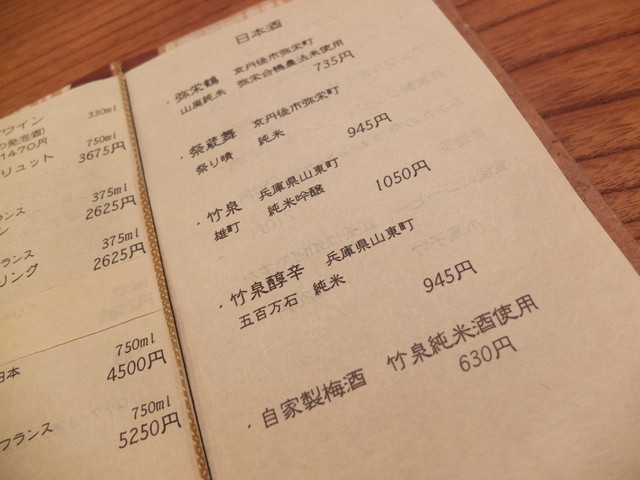 ワイン 330ml
の発泡酒)
1470円 750ml
リュット 3675円
375ml
ランス 2625円
ン
375ml
ランス 2625円
リング
750ml
日本 4500円
750ml
フランス 5250円
日本酒
・弥栄鶴 京丹後市弥栄町
山廃純米 弥栄合鴨農法米使用
735円
・祭蔵舞 京丹後市弥栄町
祭り晴 純米 945円
・竹泉 兵庫県山東町
雄町 純米吟醸 1050円
・竹泉醇辛 兵庫県山東町
五百万石 純米 945円
・自家製梅酒 竹泉純米酒使用
630円